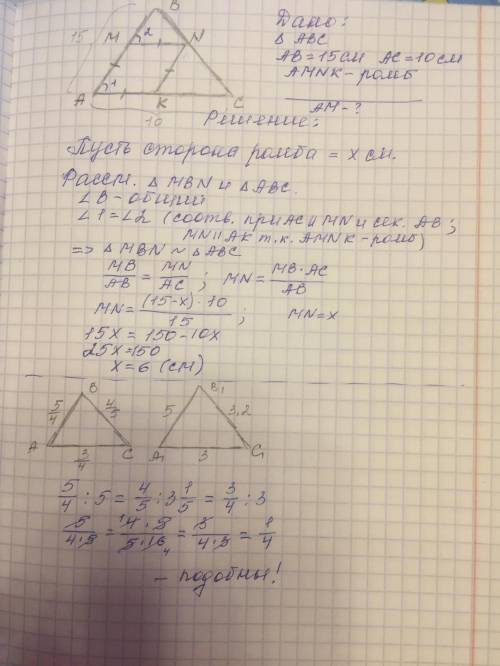 Дано:
Δ ABC
AB=15см AC=10см
AMNK-ромб
AM-?
B
15 M 2 N
A 1 K C
10
Решение:
Пусть сторона ромба = x см.
Рассм. Δ MBN и Δ ABC.
∠B-общий
∠1=∠2 (соотв. при AC ∥ MN и сек. AB;
MN ∥ AK т.к. AMNK-ромб)
=> Δ MBN ~ Δ ABC
MB/AB = MN/AC ; MN = MB·AC/AB
MN = (15-x)·10/15 ; MN=x
15x = 150-10x
25x=150
x=6 (см)
B B₁
5/4 4/5 5 3,2
A 3/4 C A₁ 3 C₁
5/4 : 5 = 4/5 : 3 1/5 = 3/4 : 3
5/4·5 = 1 4·5/5·16 4 = 3/4·3 = 1/4
- подобны!